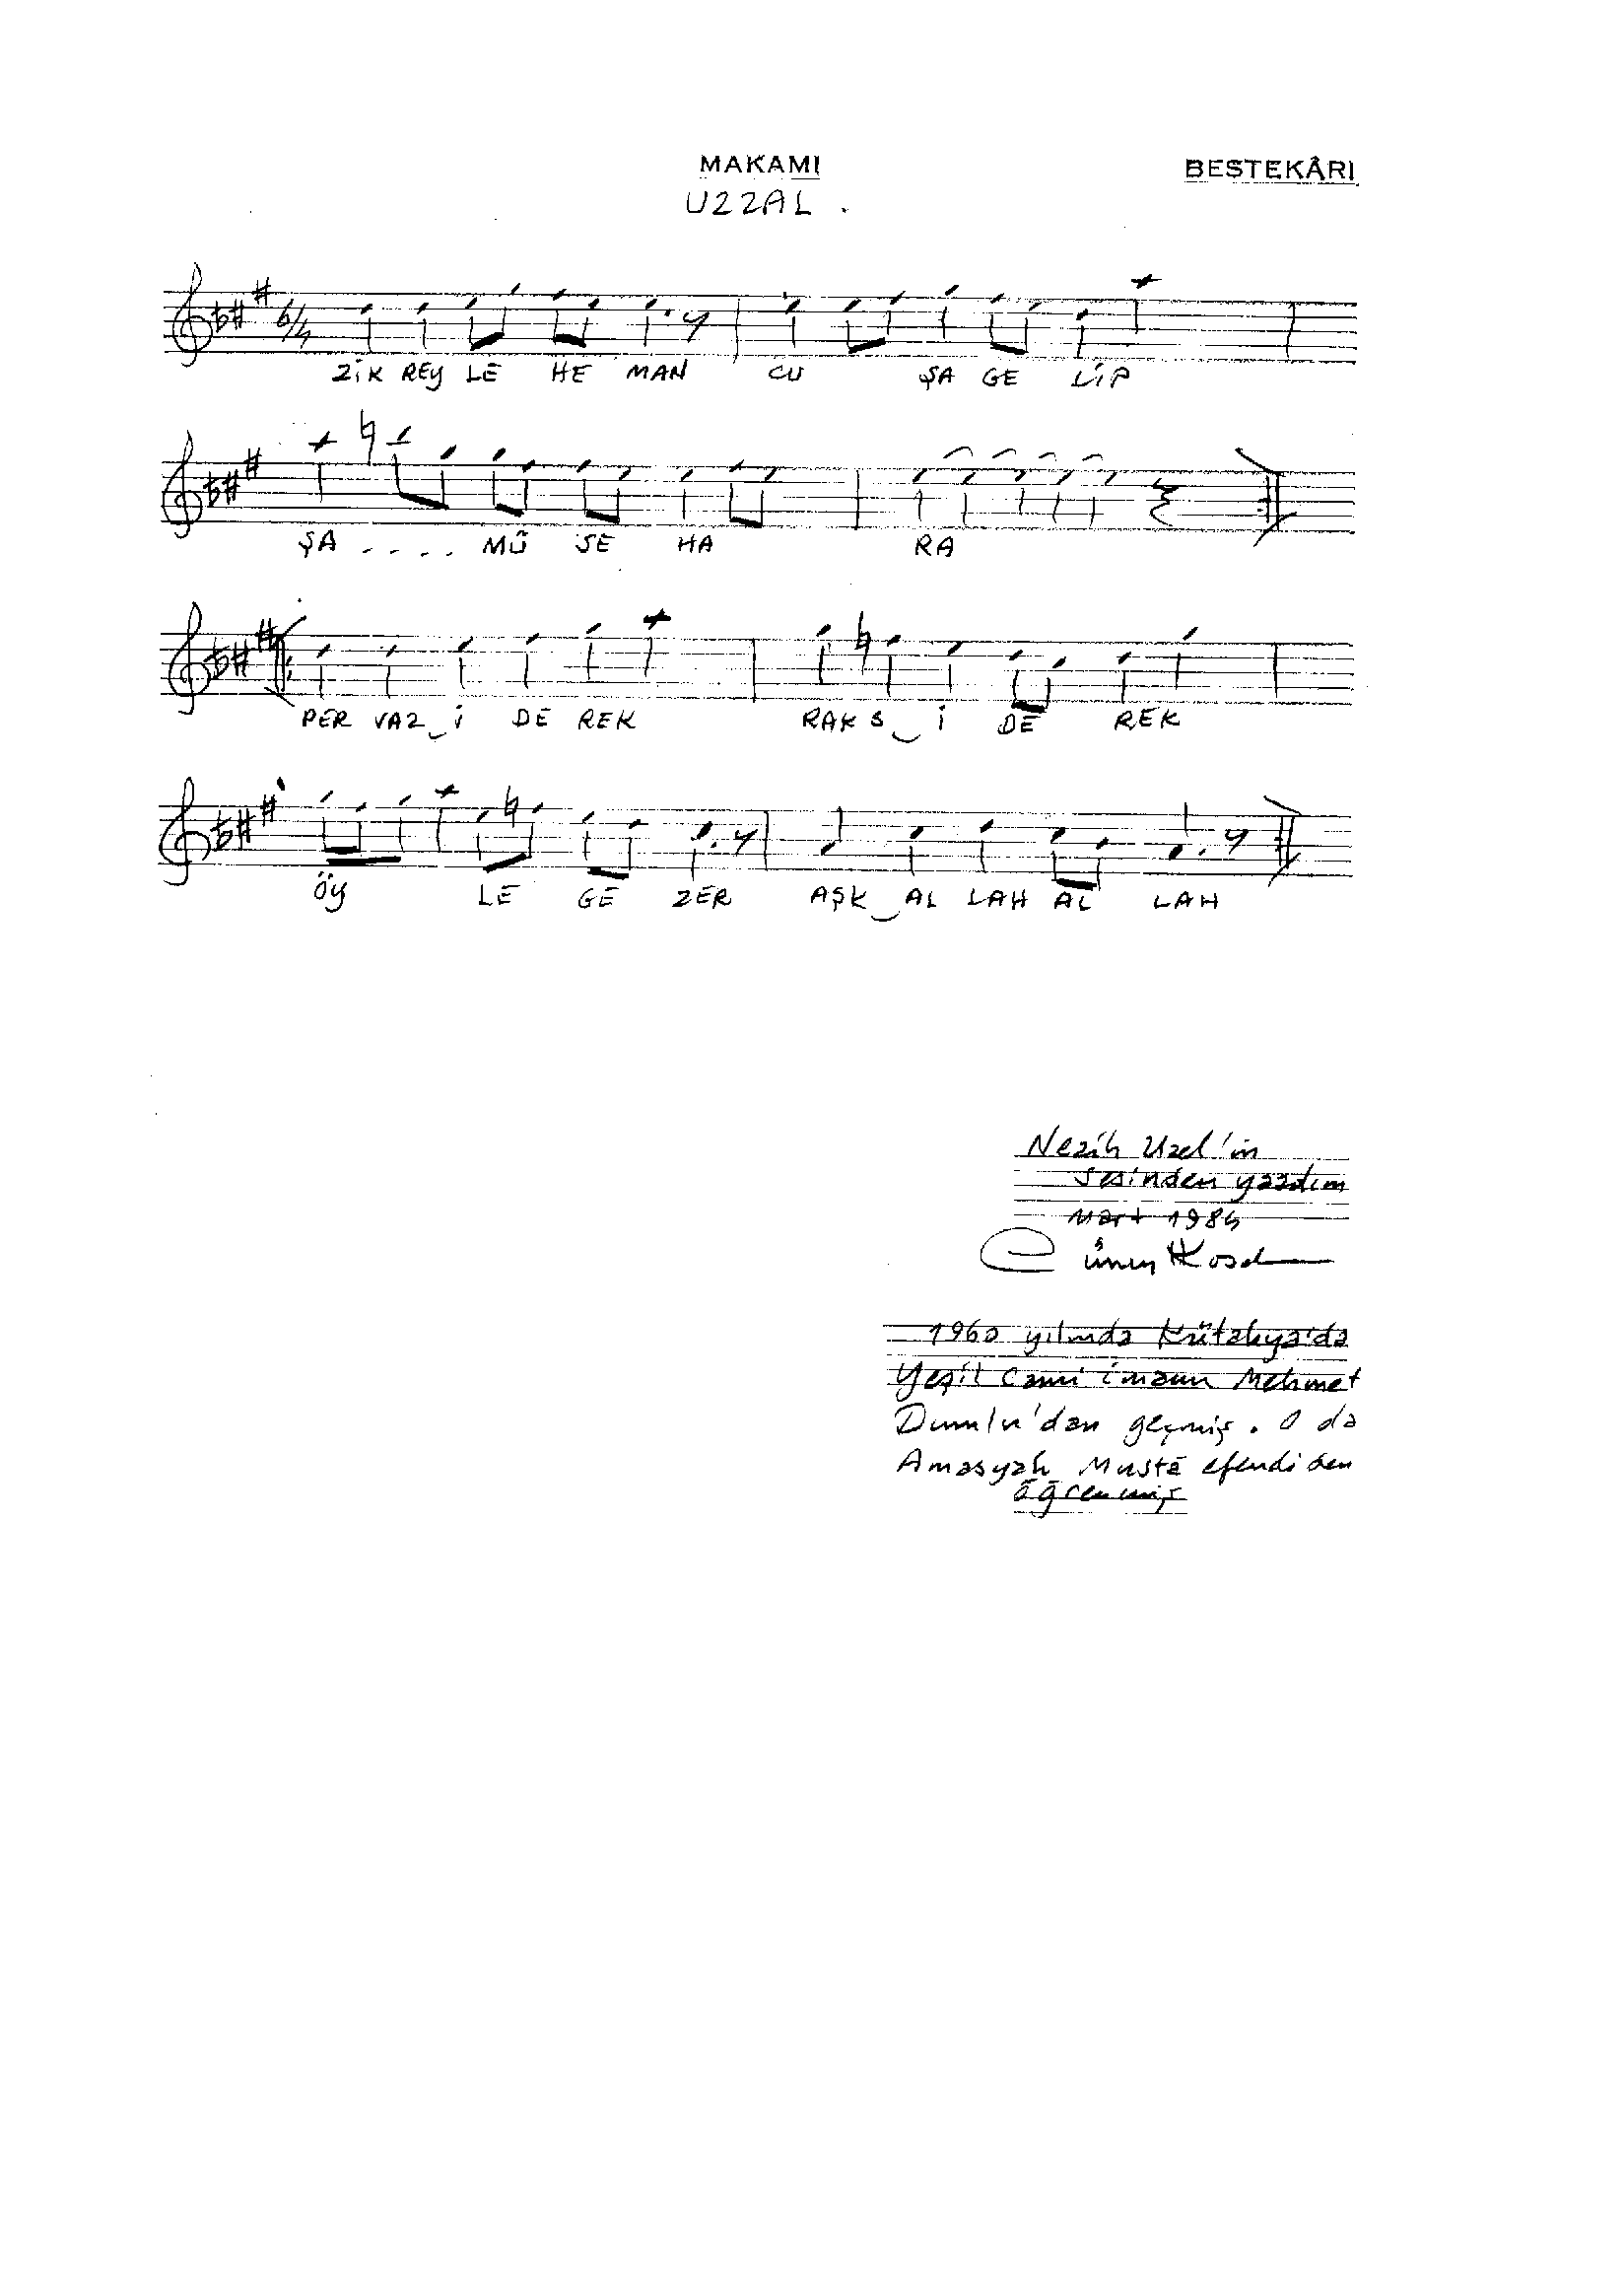 MAKAMI BESTEKÂRI
UZZAL .
6/4
ZİK REY LE HE MAN CU ŞA GE LİP
ŞA .... MÜ SE HA RA
PER VAZ‿İ DE REK RAKS‿İ DE REK
ÖY LE GE ZER AŞK‿AL LAH AL LAH
Nezih Uzel'in
sesinden yazdım
Mart 1984
Cüneyt Kosal
1960 yılında Kütahya'da
Yeşil Cami imamı Mehmet
Dumlu'dan geçmiş. O da
Amasyalı Efendiden
öğrenmiş